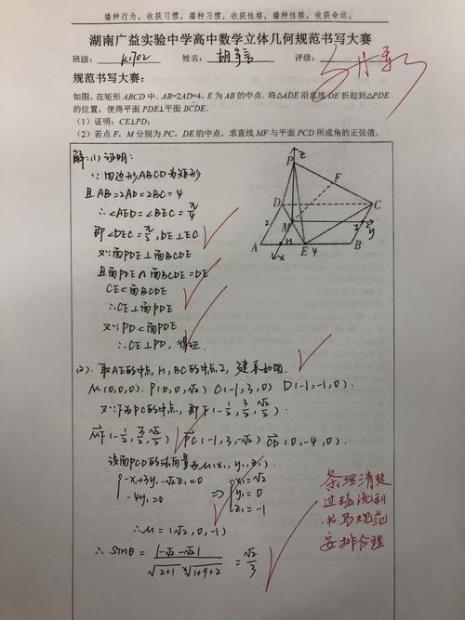 播种行为，收获习惯，播种习惯，收获性格，播种性格，收获命运。
湖南广益实验中学高中数学立体几何规范书写大赛
班级： K1702 姓名： 胡 评级：
规范书写大赛：
如图，在矩形 ABCD 中，AB=2AD=4，E 为 AB 的中点，将△ADE 沿直线 DE 折起到△PDE
的位置，使得平面 PDE⊥平面 BCDE.
（1）证明：CE⊥PD；
（2）若点 F，M 分别为 PC，DE 的中点，求直线 MF 与平面 PCD 所成角的正弦值.
解：(1) 证明：
∵四边形ABCD为矩形
且AB=2AD=2BC=4
∴∠AED=∠BEC=π/4
即∠DEC=π/2, DE⊥EC
又∵面PDE⊥面BCDE
且面PDE∩面BCDE=DE
CE⊂面BCDE
∴CE⊥面PDE
又∵PD⊂面PDE
∴CE⊥PD, 得证.
P z F D C M 2 2 y A H E 4 B x
(2). 取AE的中点, H, BC的中点, I, 建系如图.
M(0,0,0). P(0,0,√2) C(-1,3,0) D(-1,-1,0).
又∵F为PC的中点, 即F(-1/2, 3/2, √2/2).
MF(-1/2, 3/2, √2/2) PC(-1,3,-√2) CD(0,-4,0).
设面PCD的法向量为n(x₁, y₁, z₁)
{-x₁+3y₁-√2z₁=0 -4y₁=0 ⇒ {x₁=√2 y₁=0 z₁=-1
∴n=(√2,0,-1)
∴sinθ= |-√2-√2| / √2+1 × √1+9+2 = √2/3
条理清楚
过程流利
书写规范
安排合理